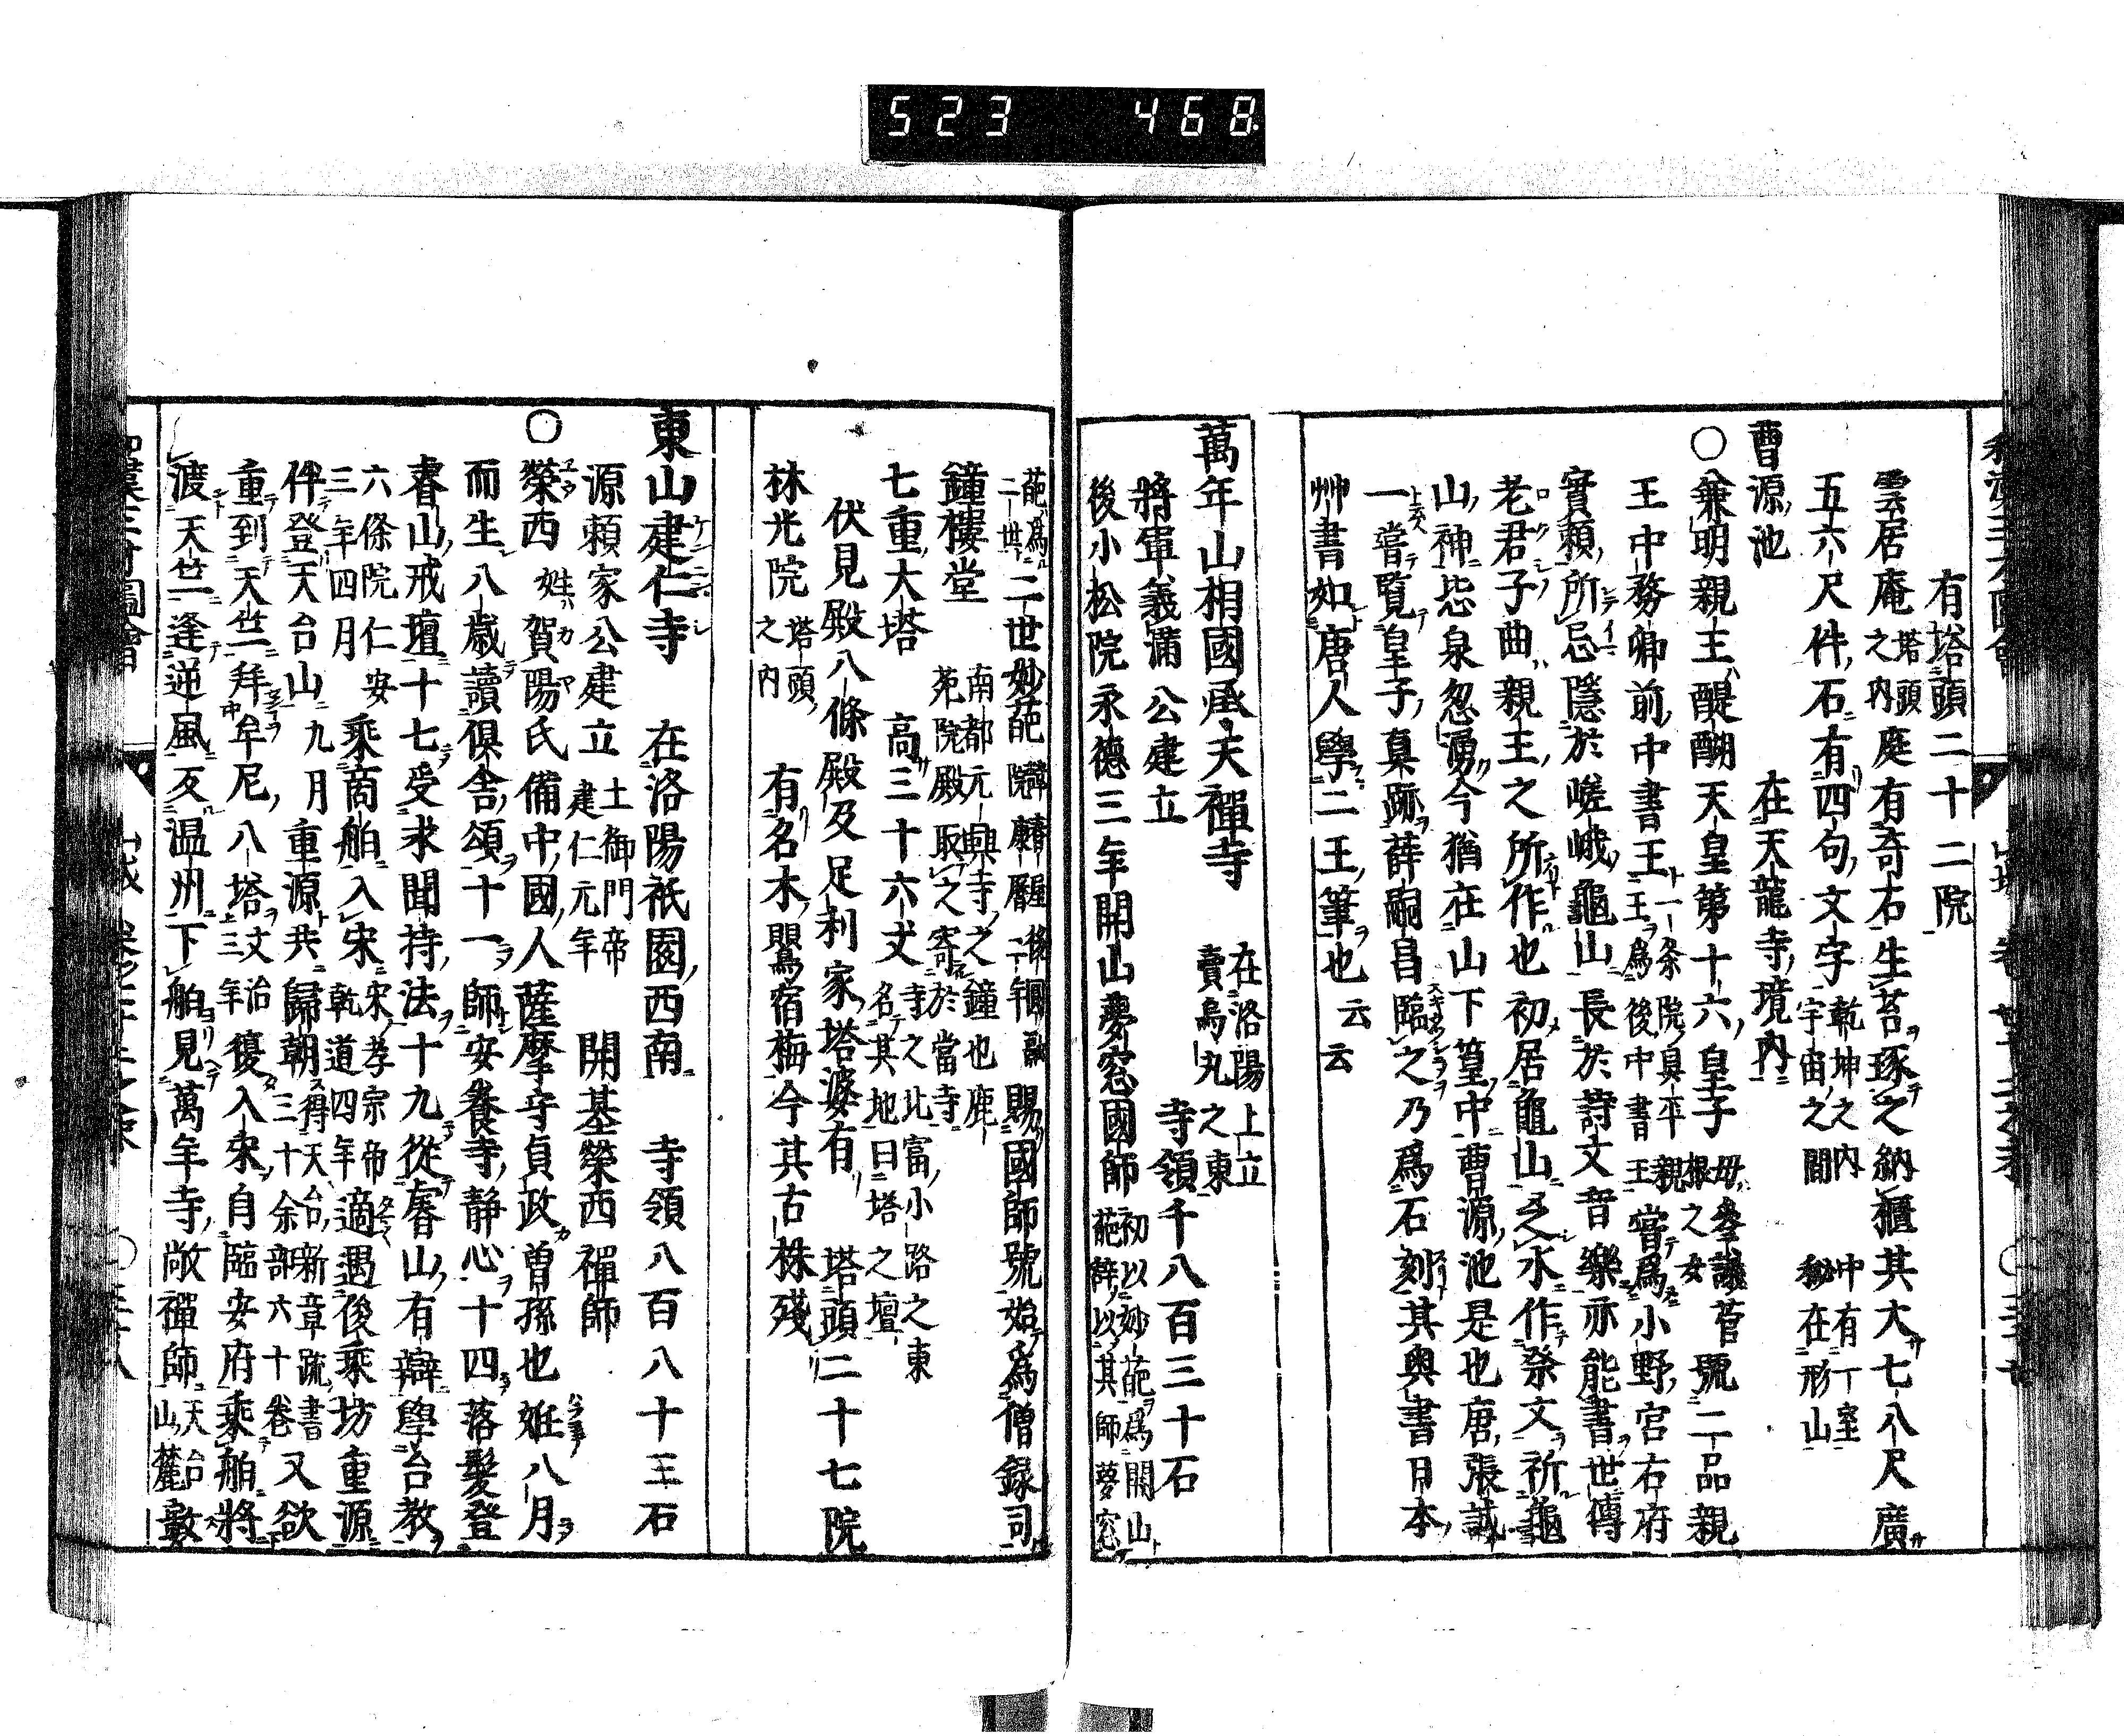 523 468
有塔頭二十二院
雲居庵 塔頭之内 庭有奇石生苔琢之納櫃其大七八尺廣
五六尺件石有四句文字 乾坤之内 宇宙之間 中有一室 秘在形山
曹源池 在天龍寺境内
〇兼明親王醍醐天皇第十六皇子 母參議菅根之女 號二品親
王中務卿前中書王 一条院具平親王為後中書王 嘗爲小野宮右府
實頼所忌隱於嵯峨龜山長於詩文音樂亦能書世傳
老君子曲親王之所作也初居龜山乏水作祭文祈龜
山神忽泉忽湧今猶在山下篁中曹源池是也唐張誠
一嘗覧皇子真跡薛嗣昌臨之乃爲石刻其奥書日本
艸書如唐人學二王筆也云云
萬年山相國承天禪寺 在洛陽上立賣烏丸之東 寺領千八百三十石
將軍義滿公建立
後小松院永德三年開山夢窓國師 初以妙葩爲開山 葩辭以其師夢窓
葩爲二世 二世妙葩 賜國師號始爲僧録司
鐘樓堂 南都元興寺之鐘也鹿苑院殿取之寄於當寺
七重大塔 高三十六丈 寺之北富小路之東名其地曰塔之壇
伏見殿八條殿及足利家塔婆有 塔頭二十七院
林光院 塔頭之内 有名木鶯宿梅今其古株殘
東山建仁寺 在洛陽祇園西南 寺領八百八十三石
源頼家公建立 土御門帝建仁元年 開基榮西禪師
〇榮西姓賀陽氏備中國人薩摩守貞政曽孫也姙八月
而生八歳讀倶舎頌十一師安養寺静心十四落髮登
睿山戒壇十七受求聞持法十九從睿山有辯學台教
六條院仁安三年四月 乘商舶入宋 宋孝宗帝乾道四年 適遇後乘坊重源
伴登天台山 九月 重源共歸朝 得天台新章疏書三十余部六十巻 又欲
重到天竺拜牟尼八塔 文治三年 復入宋自臨安府乘舶將
渡天竺逢逆風反温州下舶見萬年寺敞禪師 天台山麓 敞